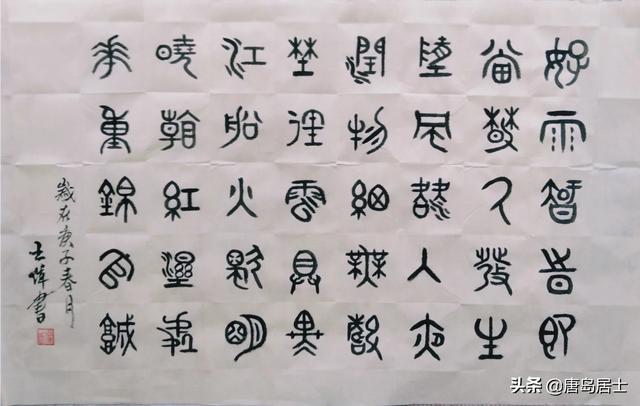 好雨智時即
當春乃發生
隨風潛入夜
潤物細無聲
埜徑雲具黑
江船火獨明
曉看紅溼處
華重錦官城
歲在庚子春月
书
头条 @唐岛居士